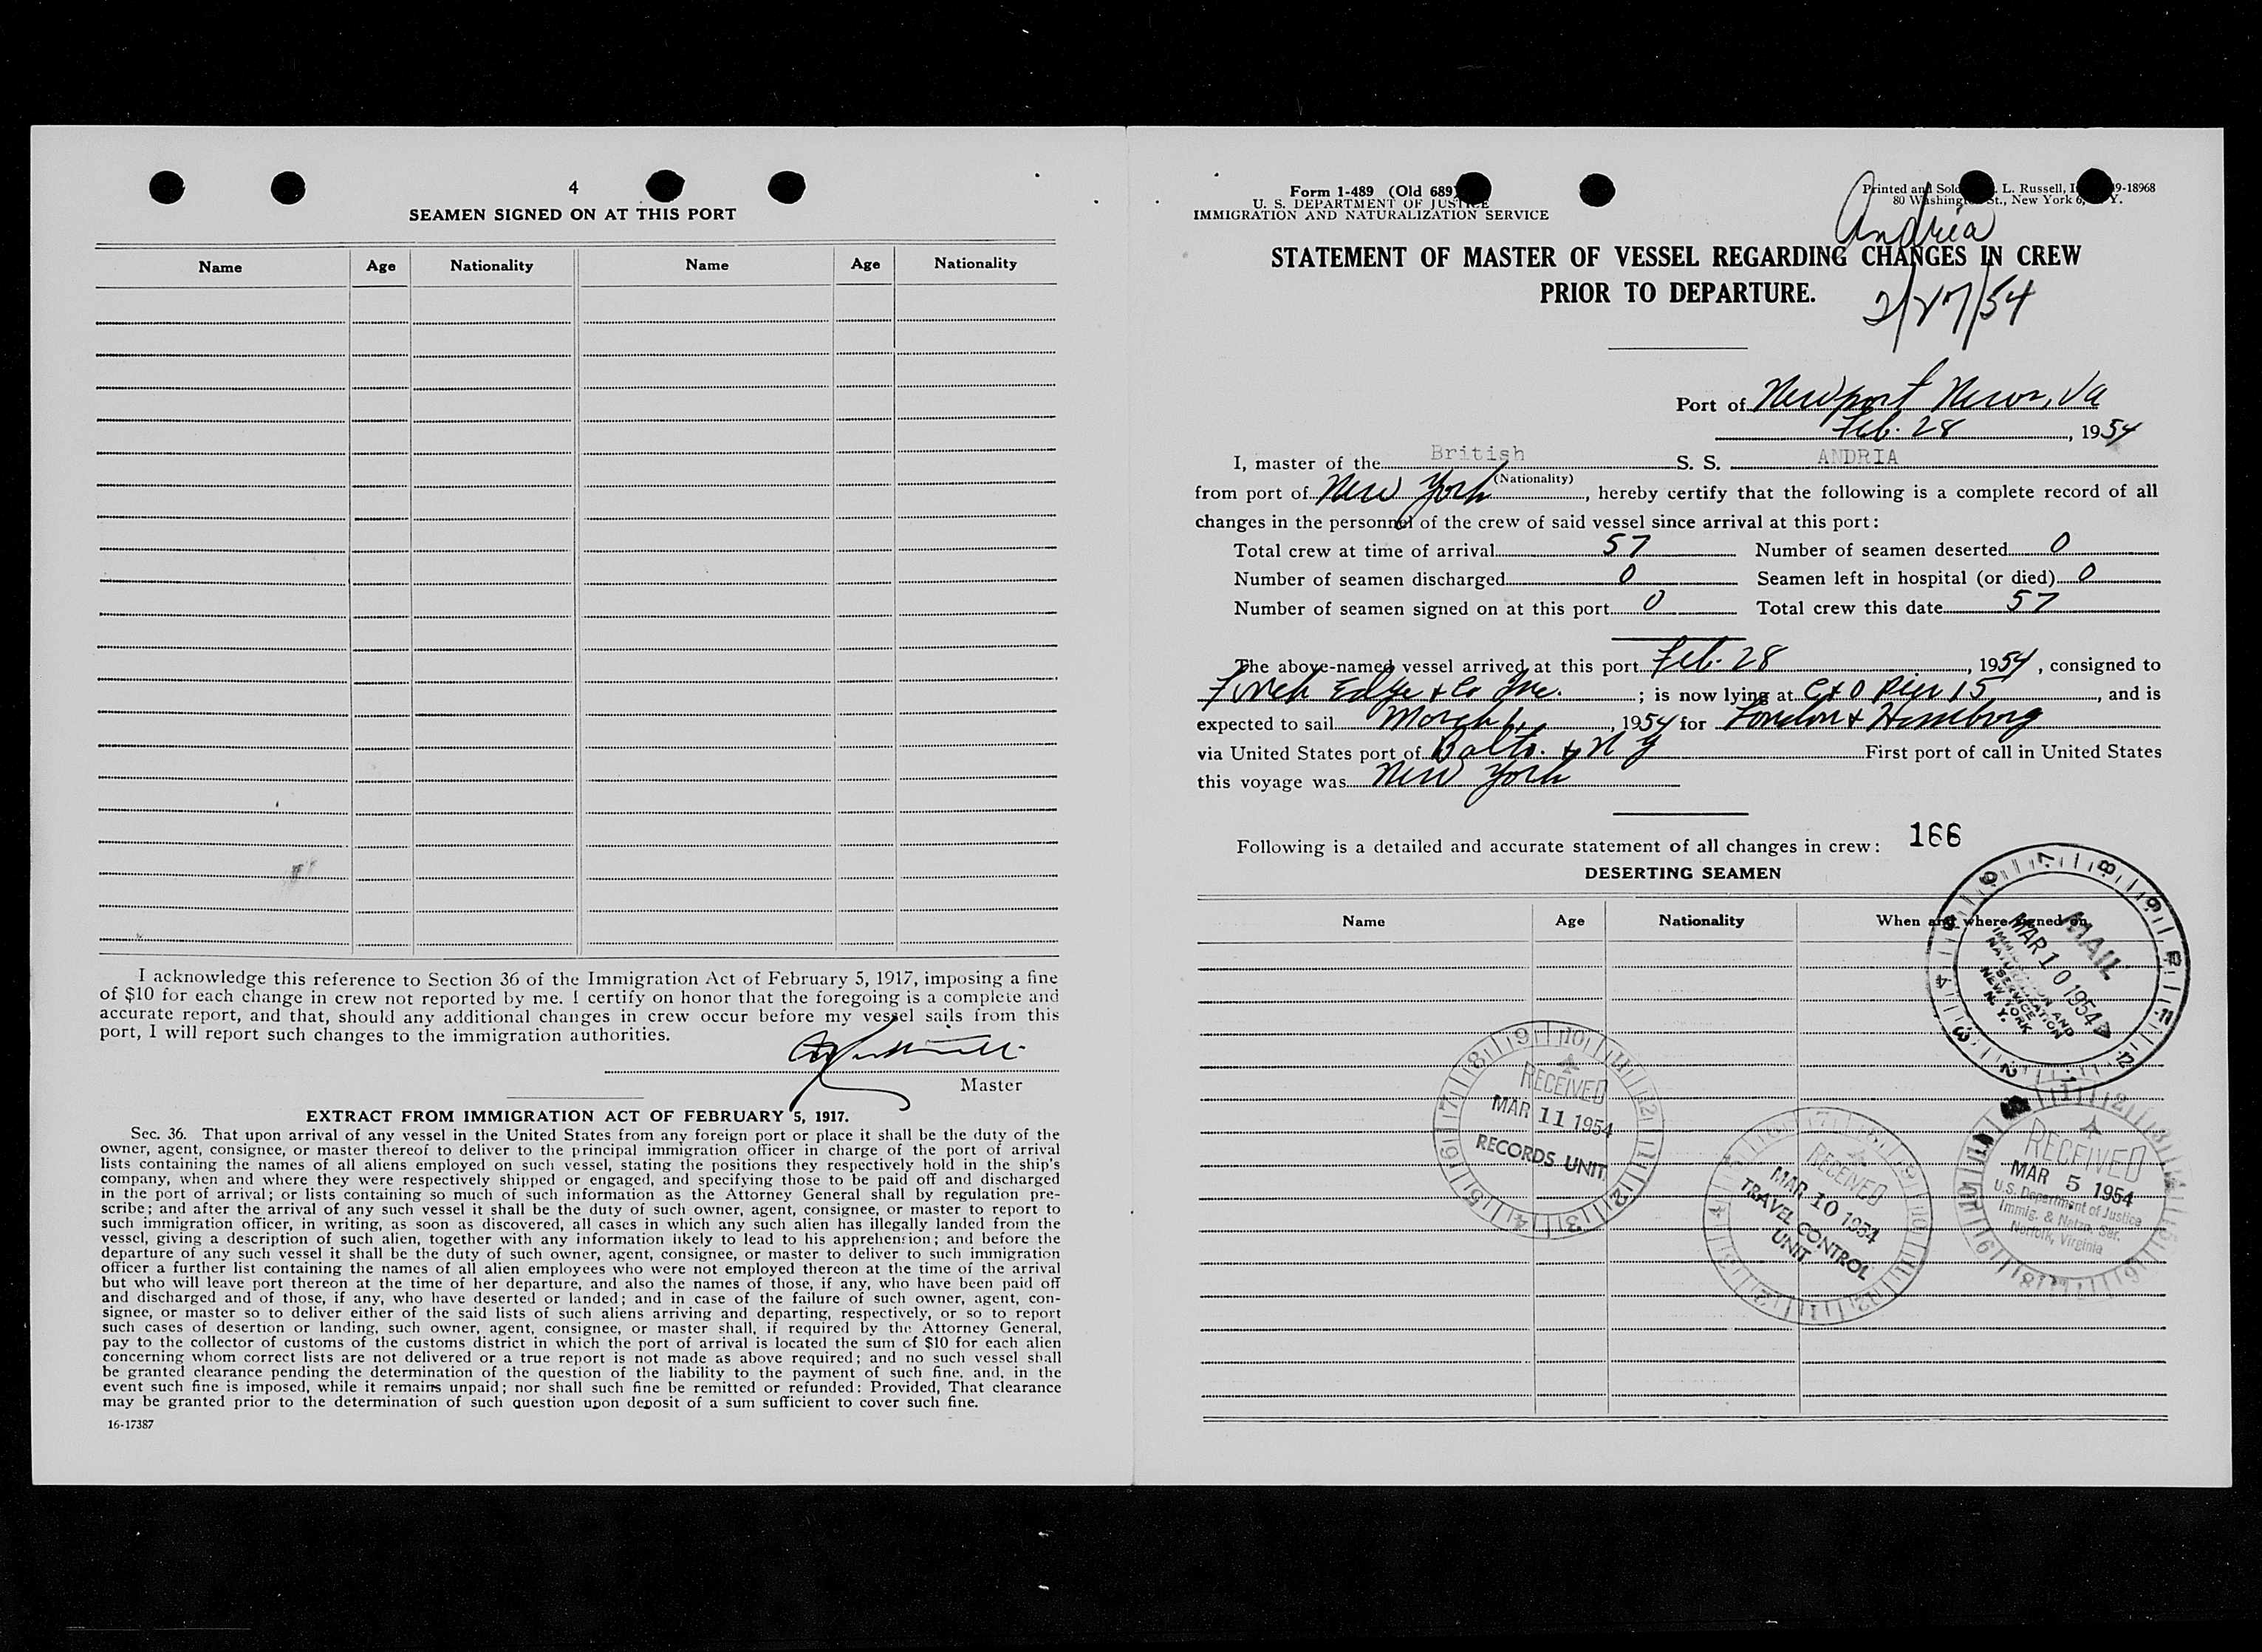 4
SEAMEN SIGNED ON AT THIS PORT
Name Age Nationality Name Age Nationality
I acknowledge this reference to Section 36 of the Immigration Act of February 5, 1917, imposing a fine
of $10 for each change in crew not reported by me. I certify on honor that the foregoing is a complete and
accurate report, and that, should any additional changes in crew occur before my vessel sails from this
port, I will report such changes to the immigration authorities.
Master
EXTRACT FROM IMMIGRATION ACT OF FEBRUARY 5, 1917.
Sec. 36. That upon arrival of any vessel in the United States from any foreign port or place it shall be the duty of the
owner, agent, consignee, or master thereof to deliver to the principal immigration officer in charge of the port of arrival
lists containing the names of all aliens employed on such vessel, stating the positions they respectively hold in the ship's
company, when and where they were respectively shipped or engaged, and specifying those to be paid off and discharged
in the port of arrival; or lists containing so much of such information as the Attorney General shall by regulation pre-
scribe; and after the arrival of any such vessel it shall be the duty of such owner, agent, consignee, or master to report to
such immigration officer, in writing, as soon as discovered, all cases in which any such alien has illegally landed from the
vessel, giving a description of such alien, together with any information likely to lead to his apprehension; and before the
departure of any such vessel it shall be the duty of such owner, agent, consignee, or master to deliver to such immigration
officer a further list containing the names of all alien employees who were not employed thereon at the time of the arrival
but who will leave port thereon at the time of her departure, and also the names of those, if any, who have been paid off
and discharged and of those, if any, who have deserted or landed; and in case of the failure of such owner, agent, con-
signee, or master so to deliver either of the said lists of such aliens arriving and departing, respectively, or so to report
such cases of desertion or landing, such owner, agent, consignee, or master shall, if required by the Attorney General,
pay to the collector of customs of the customs district in which the port of arrival is located the sum of $10 for each alien
concerning whom correct lists are not delivered or a true report is not made as above required; and no such vessel shall
be granted clearance pending the determination of the question of the liability to the payment of such fine, and, in the
event such fine is imposed, while it remains unpaid; nor shall such fine be remitted or refunded: Provided, That clearance
may be granted prior to the determination of such question upon deposit of a sum sufficient to cover such fine.
16-17387
Form 1-489 (Old 689)
U. S. DEPARTMENT OF JUSTICE
IMMIGRATION AND NATURALIZATION SERVICE
Printed and Sold L. Russell, 9-18968
80 Washington St., New York 6, Y.
Andria
STATEMENT OF MASTER OF VESSEL REGARDING CHANGES IN CREW
PRIOR TO DEPARTURE.
2/27/54
Port of Newport News, Va
Feb. 28, 1954
I, master of the British S. S. ANDRIA
(Nationality)
from port of New York, hereby certify that the following is a complete record of all
changes in the personnel of the crew of said vessel since arrival at this port:
Total crew at time of arrival 57 Number of seamen deserted 0
Number of seamen discharged 0 Seamen left in hospital (or died) 0
Number of seamen signed on at this port 0 Total crew this date 57
The above-named vessel arrived at this port Feb. 28, 1954, consigned to
Edye & Co Inc. ; is now lying at C & O Pier 15, and is
expected to sail March 1, 1954 for London & Hamburg
via United States port of Balto. & N Y First port of call in United States
this voyage was New York
Following is a detailed and accurate statement of all changes in crew: 166
DESERTING SEAMEN
Name Age Nationality When and where signed on
MAIL
MAR 10 1954
IMMIGRATION AND
NATURALIZATION
SERVICE
NEW YORK
N. Y.
RECEIVED
MAR 11 1954
RECORDS UNIT
RECEIVED
MAR 10 1954
TRAVEL CONTROL
UNIT
RECEIVED
MAR 5 1954
U.S. Department of Justice
Immig. & Natzn. Ser.
Norfolk, Virginia